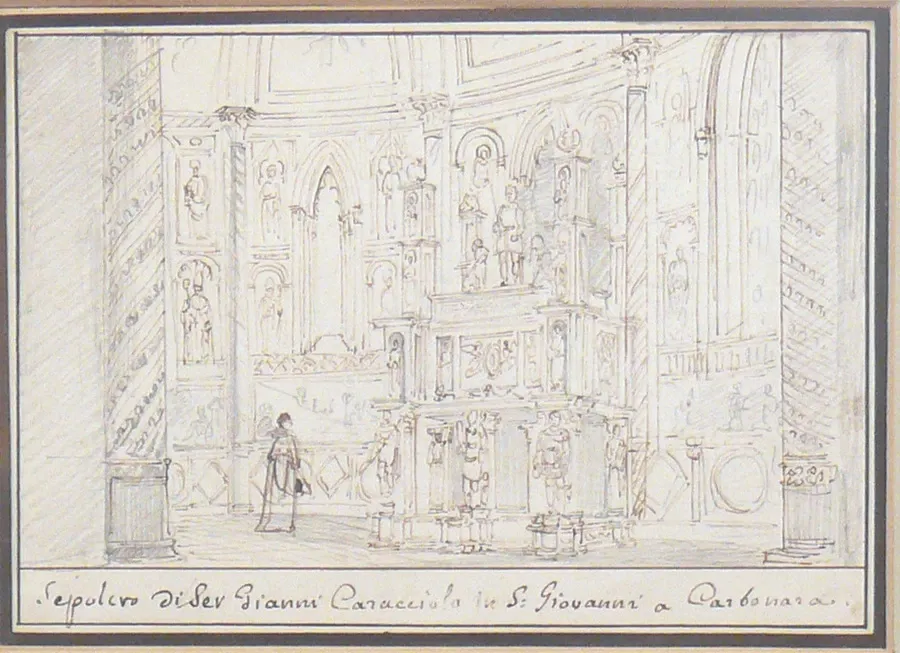 Sepolcro Di Ser Gianni Caracciolo in S: Giovanni a Carbonara.